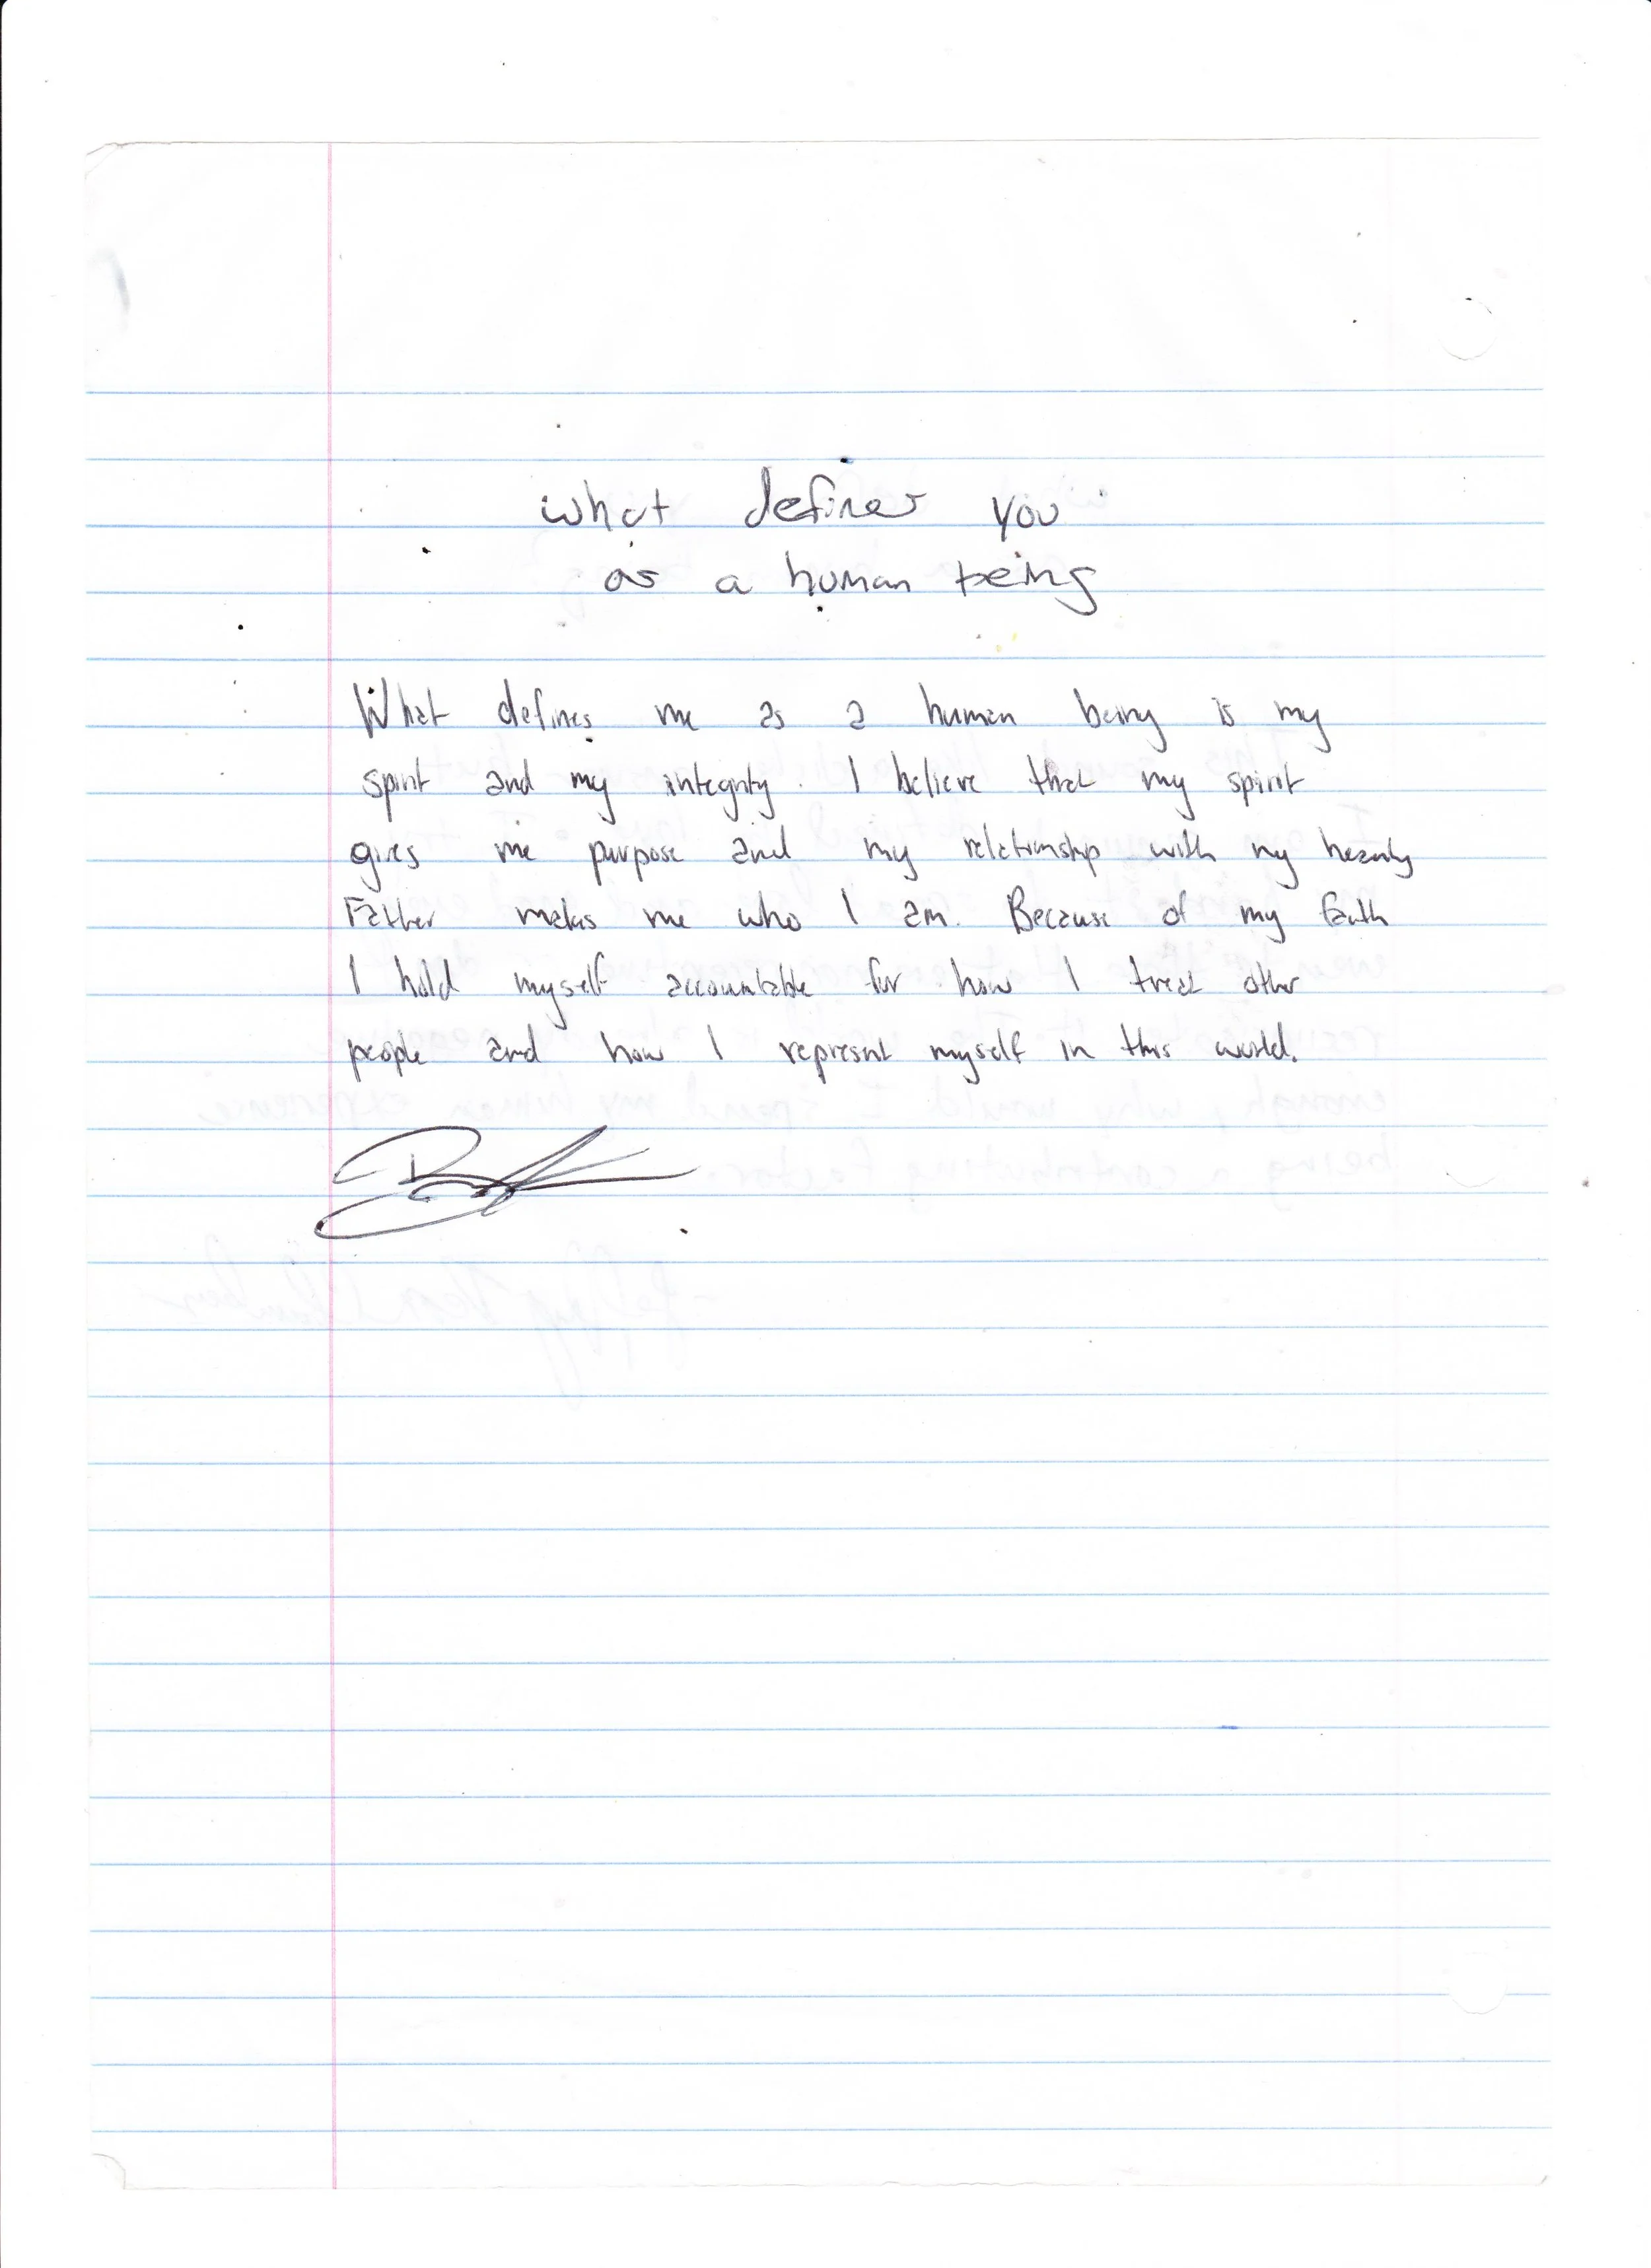 what defines you
as a human being
What defines me as a human being is my
spirit and my integrity. I believe that my spirit
gives me purpose and my relationship with my heavnly
Father makes me who I am. Because of my faith
I hold myself accountable for how I treat other
people and how I represent myself in this world.